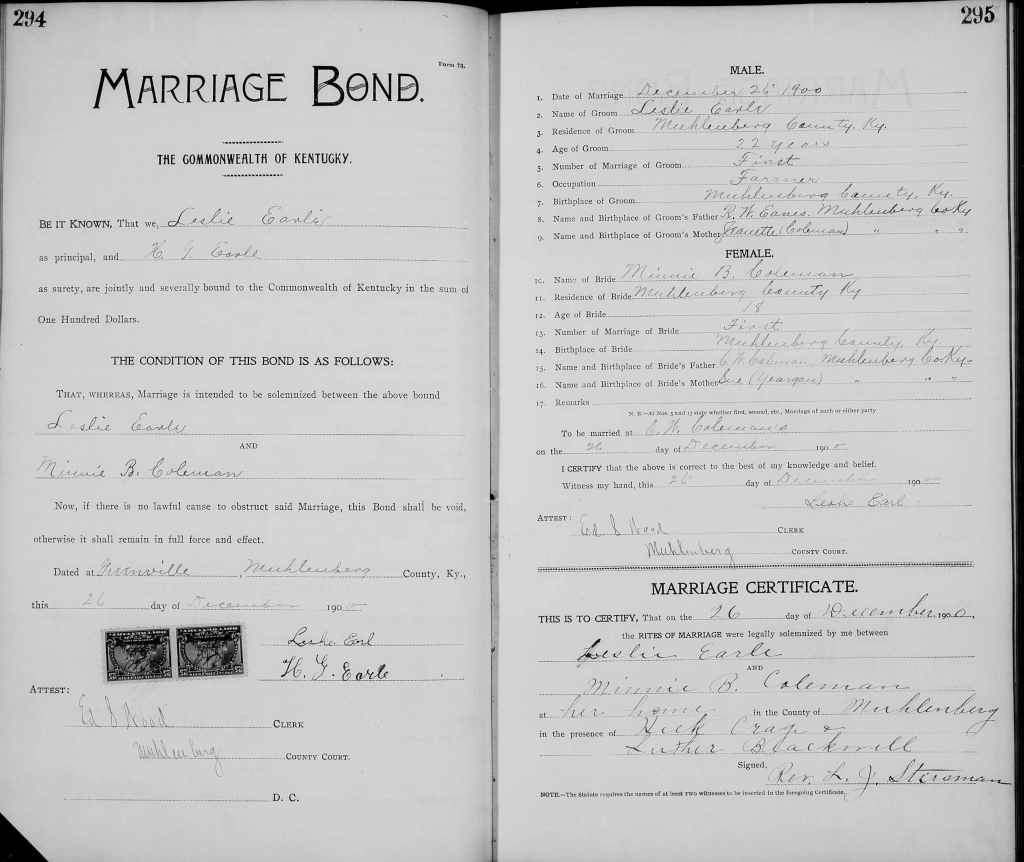 294
Form 73.
MARRIAGE BOND.
THE COMMONWEALTH OF KENTUCKY.
BE IT KNOWN, That we, Leslie Earle
as principal, and H. G. Earle
as surety, are jointly and severally bound to the Commonwealth of Kentucky in the sum of
One Hundred Dollars.
THE CONDITION OF THIS BOND IS AS FOLLOWS:
THAT, WHEREAS, Marriage is intended to be solemnized between the above bound
Leslie Earle
AND
Minnie B. Coleman
Now, if there is no lawful cause to obstruct said Marriage, this Bond shall be void,
otherwise it shall remain in full force and effect.
Dated at Greenville, Muhlenberg County, Ky.,
this 26 day of December 1900
Leslie Earl
H. G. Earle
ATTEST:
Ed S Wood CLERK
Muhlenberg COUNTY COURT.
D. C.
295
MALE.
1. Date of Marriage December 26 1900
2. Name of Groom Leslie Earle
3. Residence of Groom Muhlenberg County, Ky.
4. Age of Groom 22 years
5. Number of Marriage of Groom First
6. Occupation Farmer
7. Birthplace of Groom Muhlenberg County, Ky.
8. Name and Birthplace of Groom's Father R. W. Eaves, Muhlenberg Co Ky
9. Name and Birthplace of Groom's Mother Jeanette (Coleman) " " "
FEMALE.
10. Name of Bride Minnie B. Coleman
11. Residence of Bride Muhlenberg County Ky
12. Age of Bride 18
13. Number of Marriage of Bride First
14. Birthplace of Bride Muhlenberg County, Ky.
15. Name and Birthplace of Bride's Father C. W. Coleman, Muhlenberg Co. Ky-
16. Name and Birthplace of Bride's Mother Sue " " "
17. Remarks
N. B.—At Nos. 5 and 13 state whether first, second, etc., Marriage of each or either party
To be married at C. W. Coleman's
on the 26 day of December 1900
I CERTIFY that the above is correct to the best of my knowledge and belief.
Witness my hand, this 26 day of December 1900
Leslie Earl
ATTEST:
Ed S Wood CLERK
Muhlenberg COUNTY COURT.
MARRIAGE CERTIFICATE.
THIS IS TO CERTIFY, That on the 26 day of December, 1900,
the RITES OF MARRIAGE were legally solemnized by me between
Leslie Earle
AND
Minnie B. Coleman
at her home in the County of Muhlenberg
in the presence of Dick Crag &
Luther Blackwell
Signed, Rev. L. J. Stirsman
NOTE.—The Statute requires the names of at least two witnesses to be inserted in the foregoing Certificate.